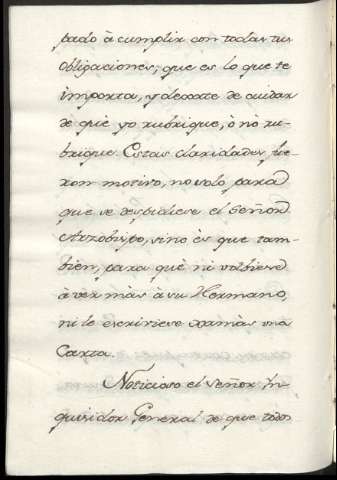 pado à cumplir con todas tus
obligaciones, que es lo que te
importa, y dexate de cuidar
de què yo rubrique, ò nò ru-
brique. Estas claridades fue-
ron motivo, no solo para
què se despidiese el Señor
Arzobispo, sino ès que tam-
bien, para què ni volbiese
à ver màs à su Hermano,
ni le escriviese xamàs una
Carta.
Noticioso el Señor Yn-
quisidor General de que todos